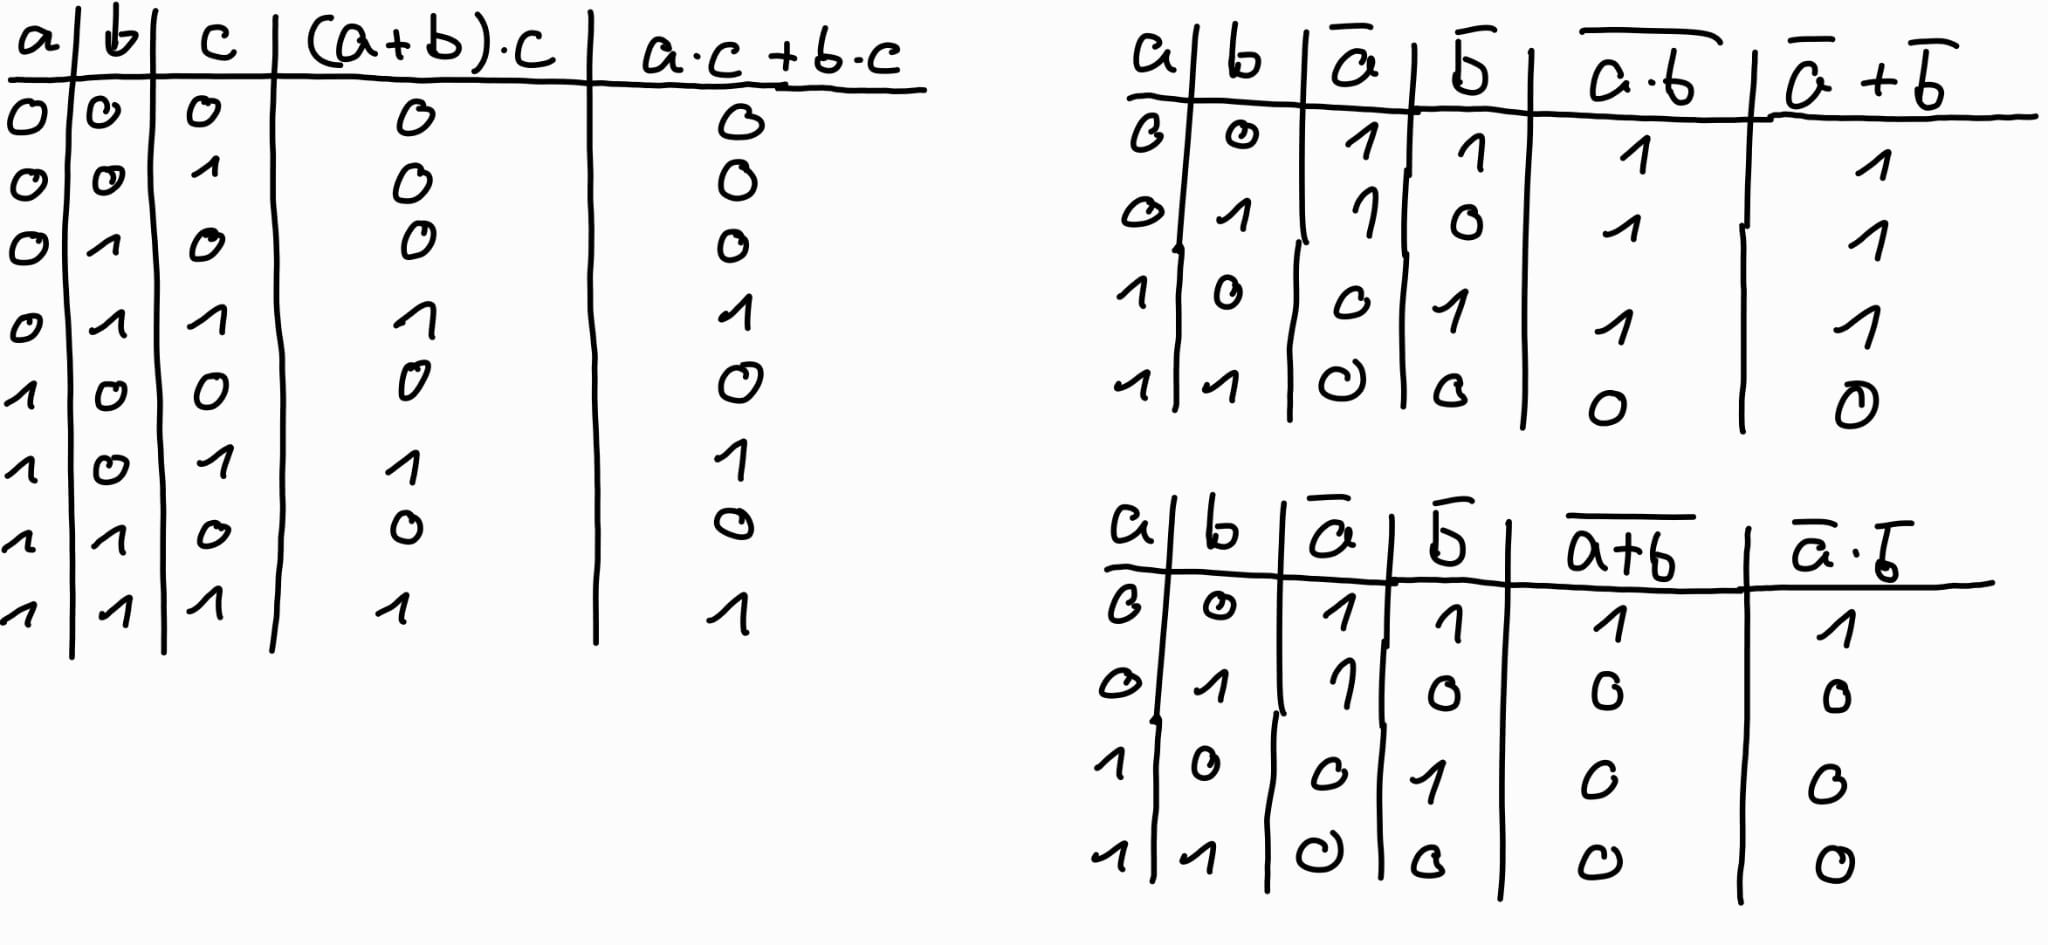 a b c (a+b)·c a·c + b·c
0 0 0 0 0
0 0 1 0 0
0 1 0 0 0
0 1 1 1 1
1 0 0 0 0
1 0 1 1 1
1 1 0 0 0
1 1 1 1 1
a b a̅ b̅ a̅·̅b̅ a̅ + b̅
0 0 1 1 1 1
0 1 1 0 1 1
1 0 0 1 1 1
1 1 0 0 0 0
a b a̅ b̅ a̅+̅b̅ a̅ · b̅
0 0 1 1 1 1
0 1 1 0 0 0
1 0 0 1 0 0
1 1 0 0 0 0